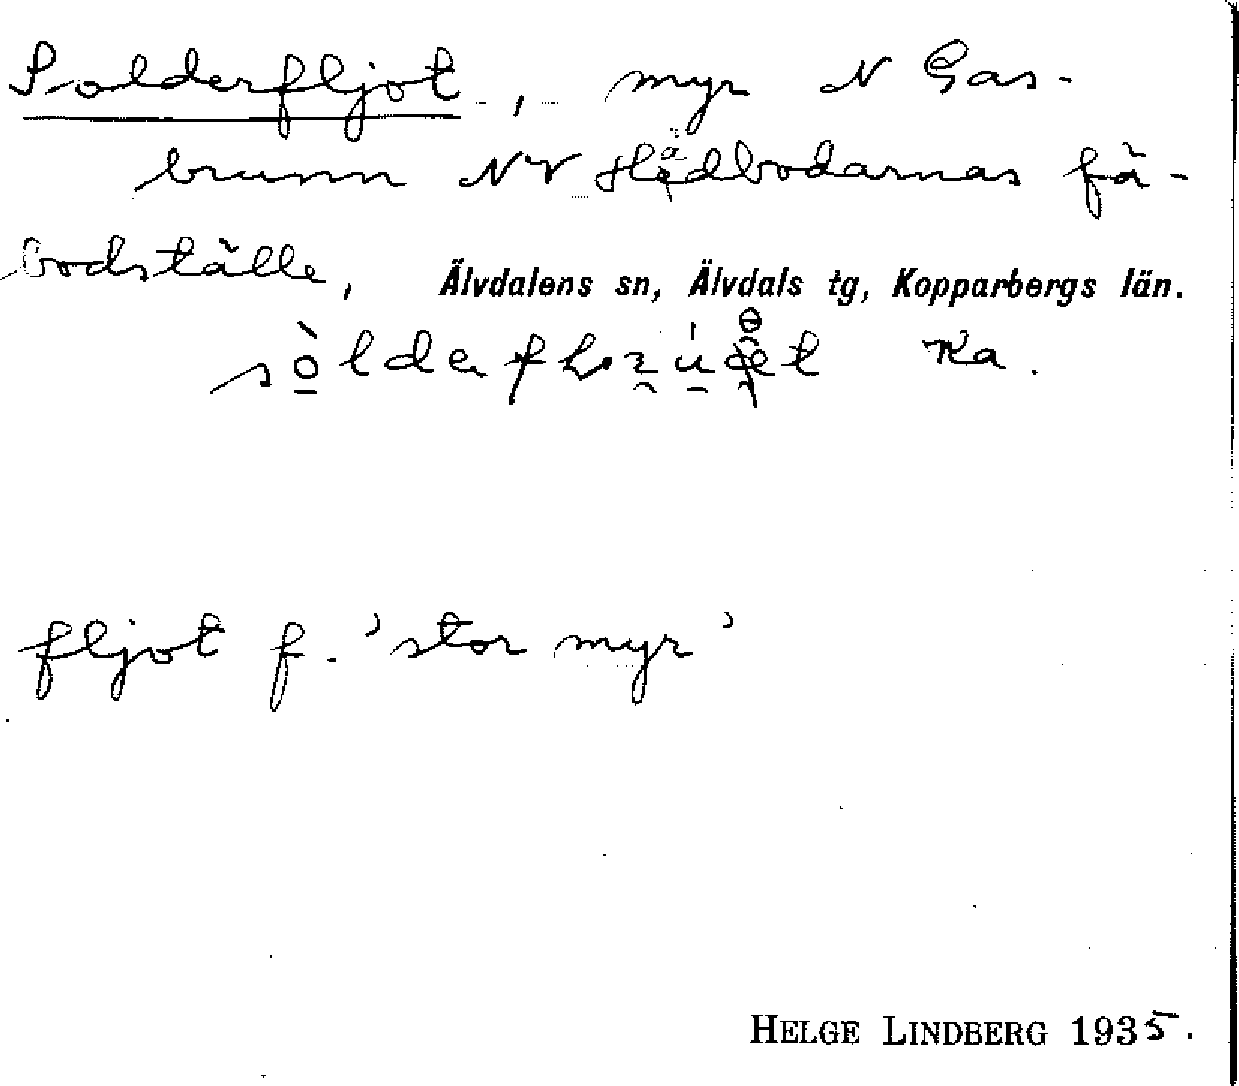 Solderfljot, myr N Gas-
brunn NV Hädbodarnas fä-
bodställe, Älvdalens sn, Älvdals tg, Kopparbergs län.
Ka.
fljot f. 'stor myr'
HELGE LINDBERG 1935.